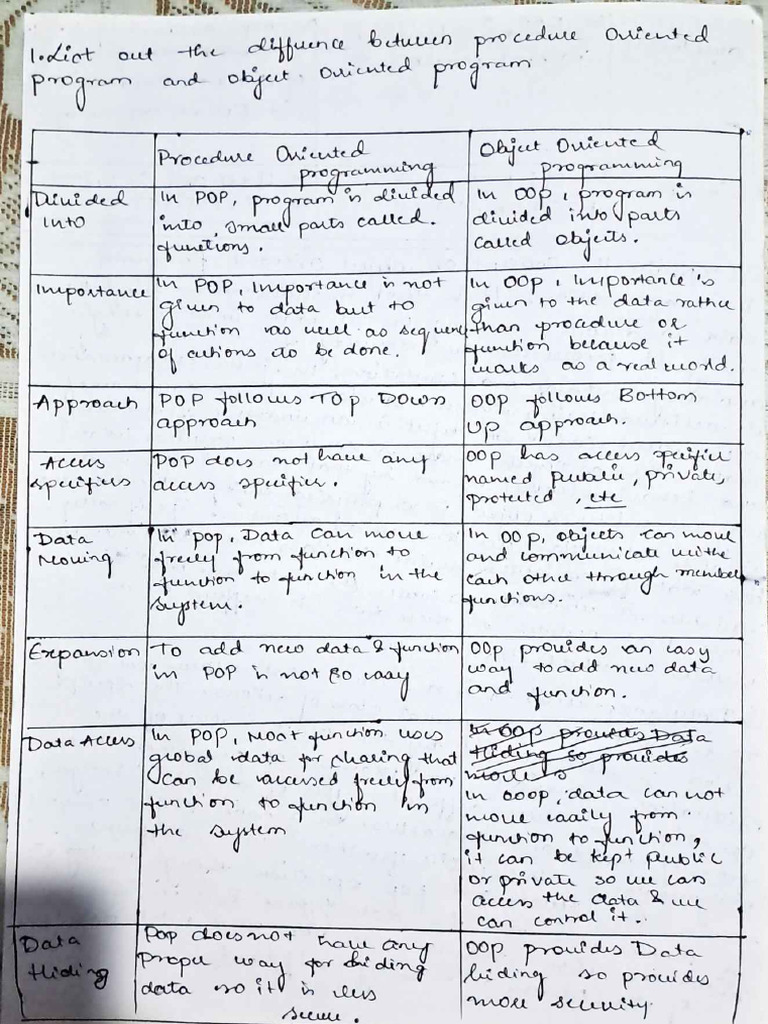 1. List out the diffuence between procedure Oriented
program and object Oriented program
Procedure Oriented
programming
Object Oriented
programming
Divided
Into
In POP, program is divided
into small parts called.
functions.
In OOP, program is
divided into parts
called objects.
Importance
In POP, Importance is not
given to data but to
function as well as sequence
of actions to be done.
In OOp, Importance is
given to the data rather
than procedure or
function because it
works as a real world.
Approach
POP follows Top Down
approach
OOP follows Bottom
Up approach.
Access
specifiers
POP does not have any
access specifier.
OOP has access specifier
named public, private,
protected, etc
Data
Moving
In pop, Data can move
freely from function to
function to function in the
system.
In OOp, objects can move
and communicate withe
each other through member
functions.
Expansion
To add new data & function
in POP is not so easy
OOp provides an easy
way to add new data
and function.
Data Access
In POP, Most function uses
global data for sharing that
can be accessed freely from
function to function in
the system
In OOP provides Data
Hiding so provides
more s
In OOOP, data can not
move easily from
function to function,
it can be kept public
or private so we can
access the data & we
can control it.
Data
Hiding
Pop does not have any
proper way for hiding
data so it is less
secure.
OOP provides Data
hiding so provides
more security